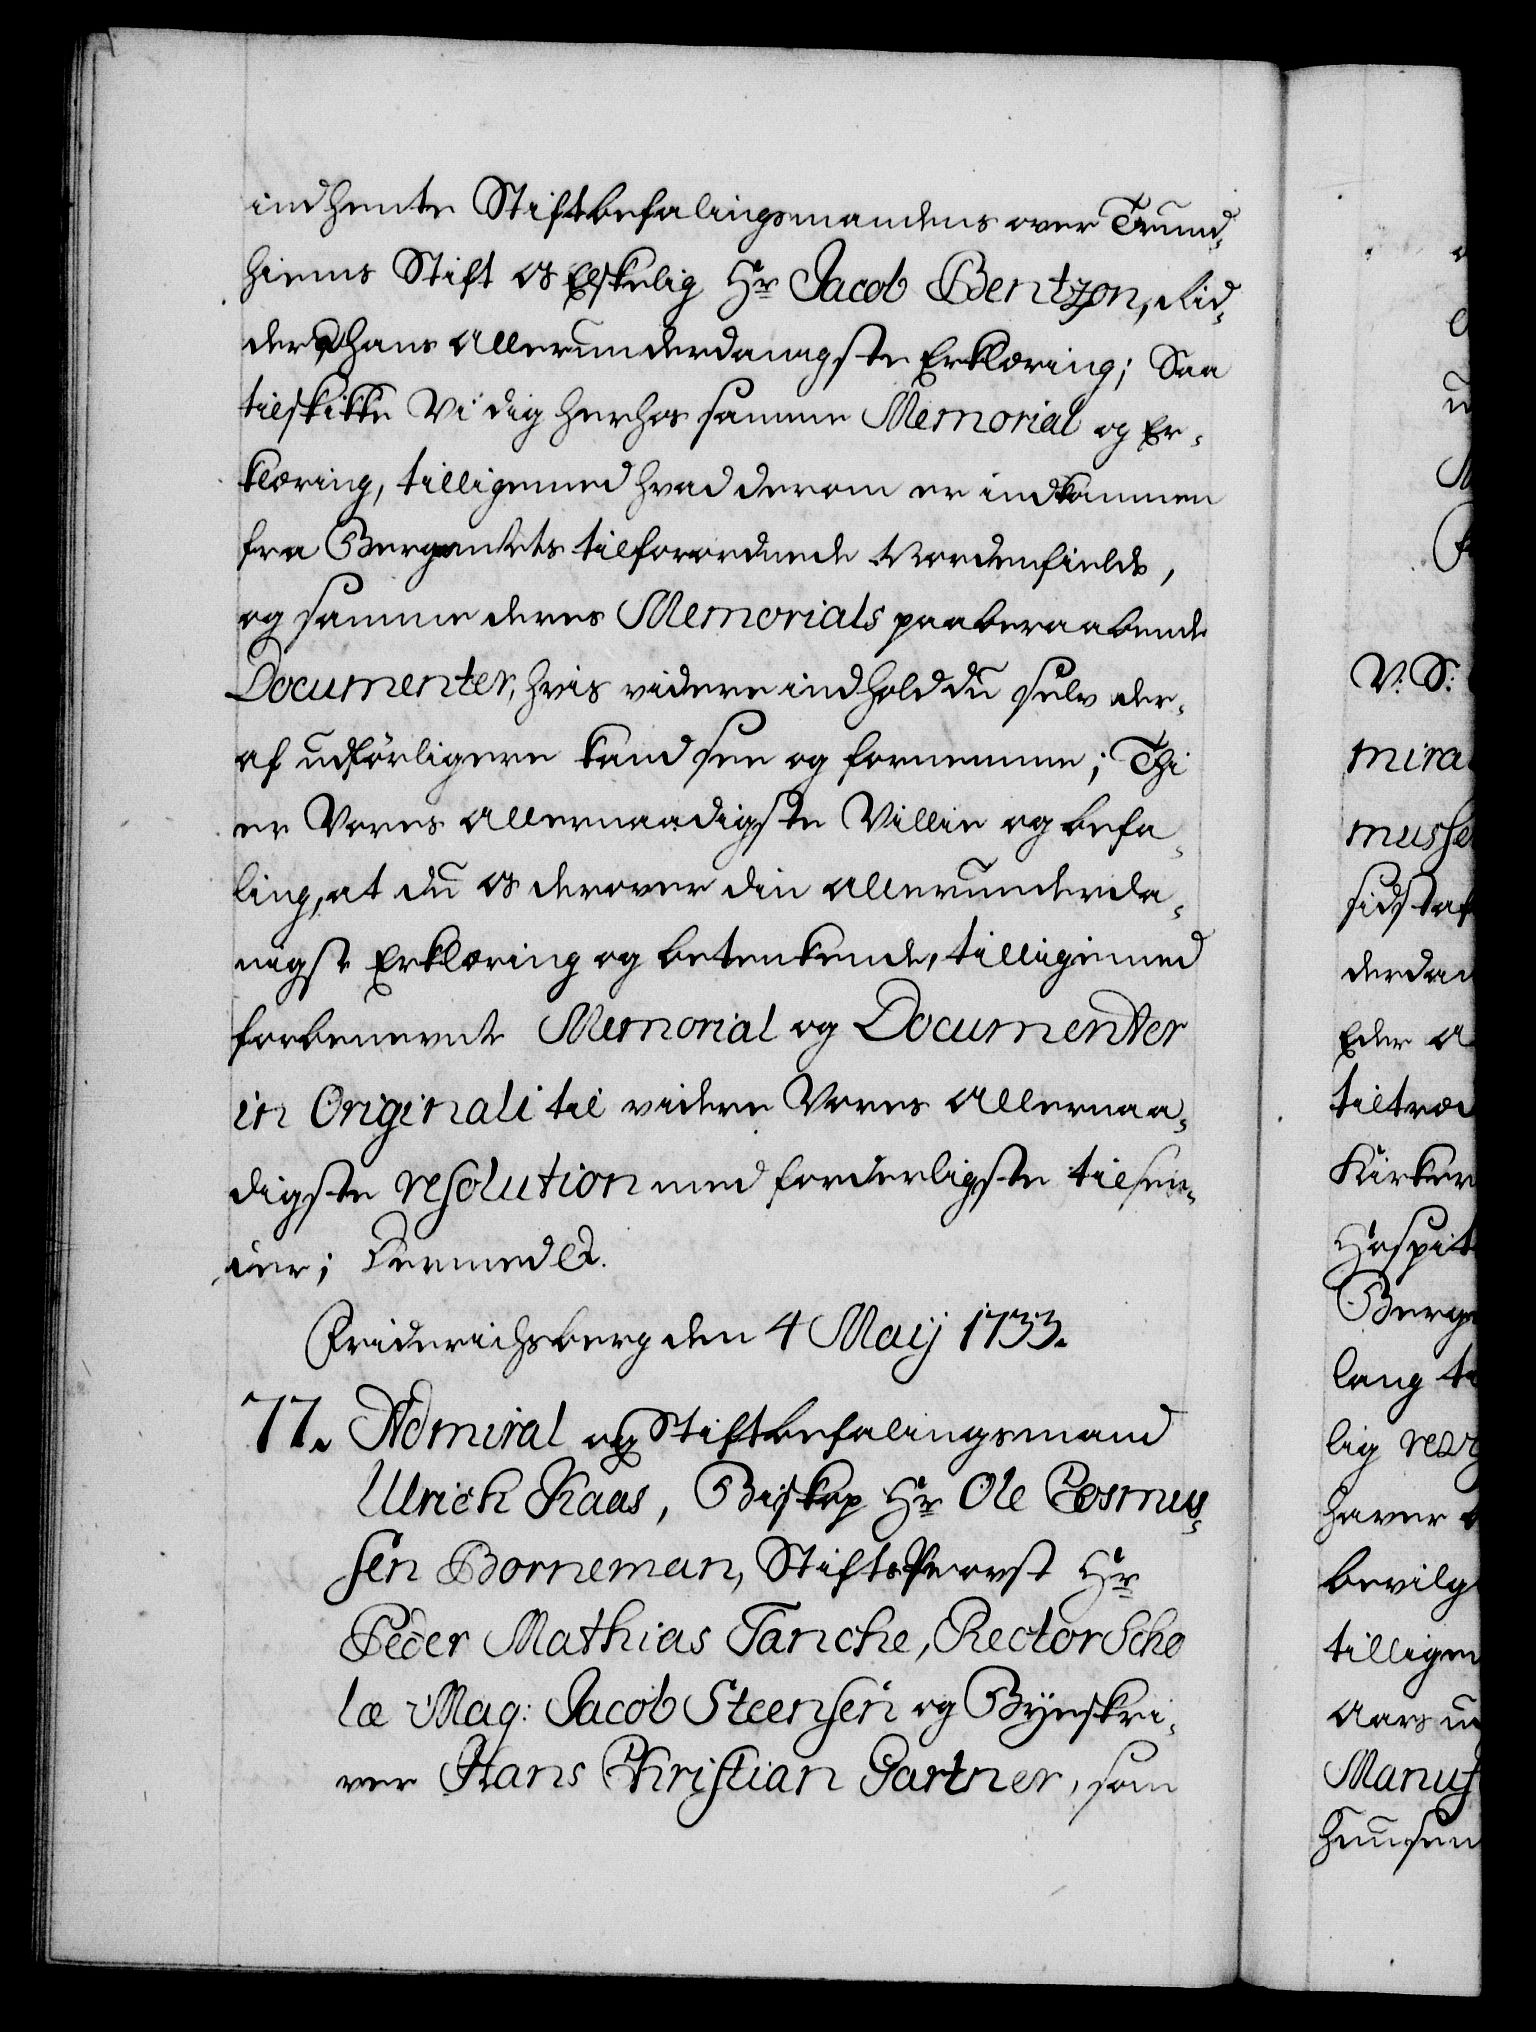 indhente Stiftbefalingsmandens over Trund-
hiems Stift os Elskelig Hr Jacob Bentzon, Rid-
der hans allerunderdanigste Erklæring; Saa
tilskikke Vi dig herhos samme Memorial og Er-
klæring, tilligemed hvad derom er indkommen
fra Bergamtets tilforordnede Nordenfields,
og samme deres Memorials paaberaabende
Documenter, hvis videre indhold du selv der-
af udførligere kand see og fornemme; Thi
er Vores allernaadigste Villie og befa-
ling, at du os derover din allerunderda-
nigst Erklæring og betenkende, tilligemed
forbenevnte Memorial og Documenter
in Originali til videre Vores allernaa-
digste resolution med forderligste tilsen-
der; Dermed &.
Friderichsberg den 4 Maij 1733.
77. Admiral og Stiftbefalingsmand
Ulrich Kaas, Biskop Hr Ole Cosmus-
sen Borneman, StiftsProvst Hr
Peder Mathias Tanche, Rector Scho
læ Mag: Jacob Steensen og Byeskri-
ver Hans Christian Gartner, som
V: S:
mira
musse
sidst af
derdan
Eder a
tiltræ
Kirker
Hospit
Berge
lang t
lig
haver
bevilg
tillige
Aars
Manus